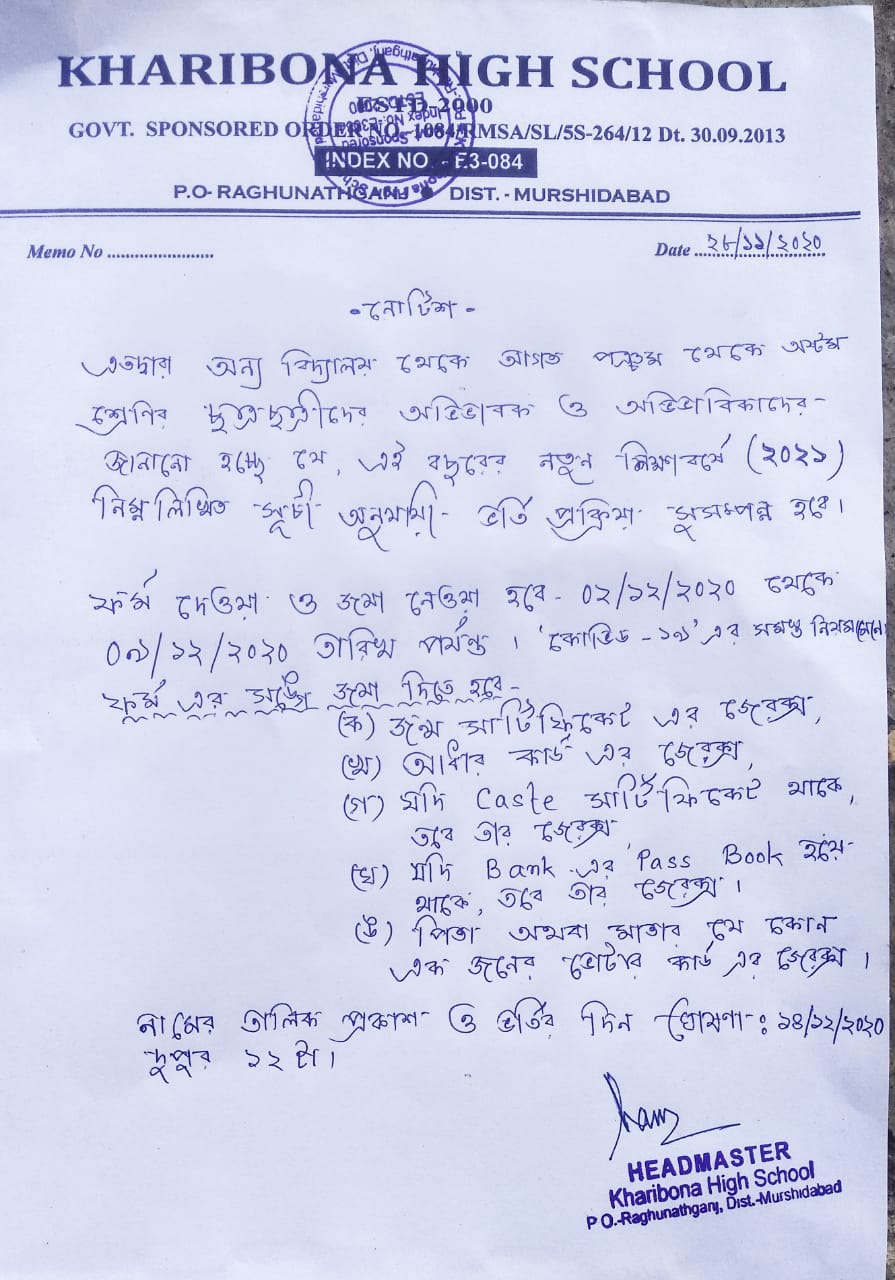 KHARIBONA HIGH SCHOOL
ESTD-2000
GOVT. SPONSORED ORDER NO.-1084/RMSA/SL/5S-264/12 Dt. 30.09.2013
INDEX NO. - E3-084
P.O- RAGHUNATHGANJ ● DIST. - MURSHIDABAD
Memo No ........................ Date ..২৮/১১/২০২০
-নোটিশ-
এতদ্বারা অন্য বিদ্যালয় থেকে আগত পঞ্চম থেকে অষ্টম
শ্রেণির ছাত্রছাত্রীদের অভিভাবক ও অভিভাবিকাদের-
জানানো হচ্ছে যে, এই বছরের নতুন শিক্ষাবর্ষে (২০২১)
নিম্নলিখিত সূচী অনুযায়ী- ভর্তি প্রক্রিয়া সুসম্পন্ন হবে।
ফর্ম দেওয়া ও জমা নেওয়া হবে- ০২/১২/২০২০ থেকে
০৯/১২/২০২০ তারিখ পর্যন্ত। 'কোভিড -১৯' এর সমস্ত নিয়ম মেনে।
ফর্ম এর সঙ্গে জমা দিতে হবে-
(ক) জন্ম সার্টিফিকেট এর জেরক্স,
(খ) আধার কার্ড এর জেরক্স,
(গ) যদি Caste সার্টিফিকেট থাকে,
তবে তার জেরক্স
(ঘ) যদি Bank এর Pass Book হয়ে-
থাকে, তবে তার জেরক্স।
(ঙ) পিতা অথবা মাতার যে কোন
এক জনের ভোটার কার্ড এর জেরক্স।
নামের তালিক প্রকাশ ও ভর্তির দিন ঘোষণা-: ১৪/১২/২০২০
দুপুর ১২ টা।
HEADMASTER
Kharibona High School
P.O.-Raghunathganj, Dist.-Murshidabad